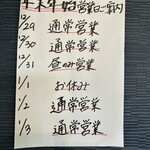 年末年始営業のご案内
12/29 通常営業
12/30 通常営業
12/31 昼のみ営業
1/1 お休み
1/2 通常営業
1/3 通常営業